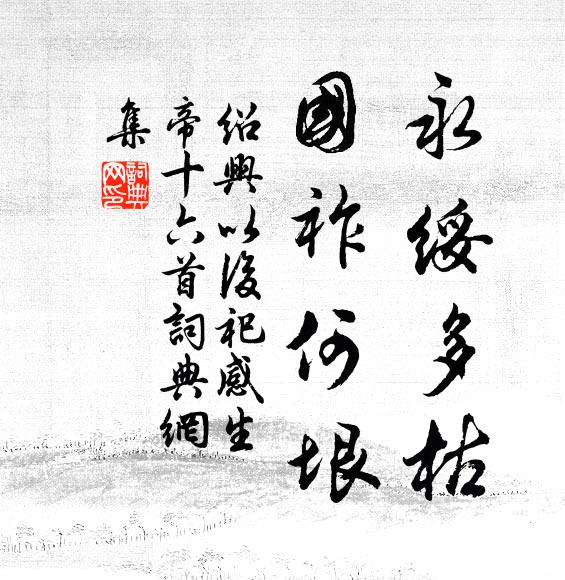 永綏多枯
國祚何垠
紹興以後祀感生
帝十六首詞典網
集
詞典網印